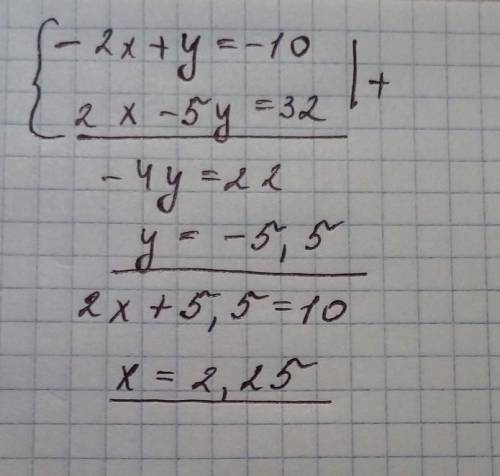 { - 2x + y = -10 | +
2x - 5y = 32
- 4y = 22
y = -5,5
2x + 5,5 = 10
x = 2,25